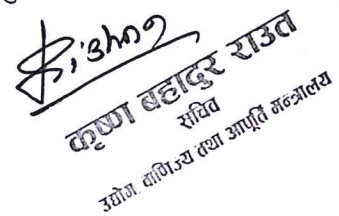 Krishna
कृष्ण बहादुर राउत
सचिव
उद्योग, वाणिज्य तथा आपूर्ति मन्त्रालय